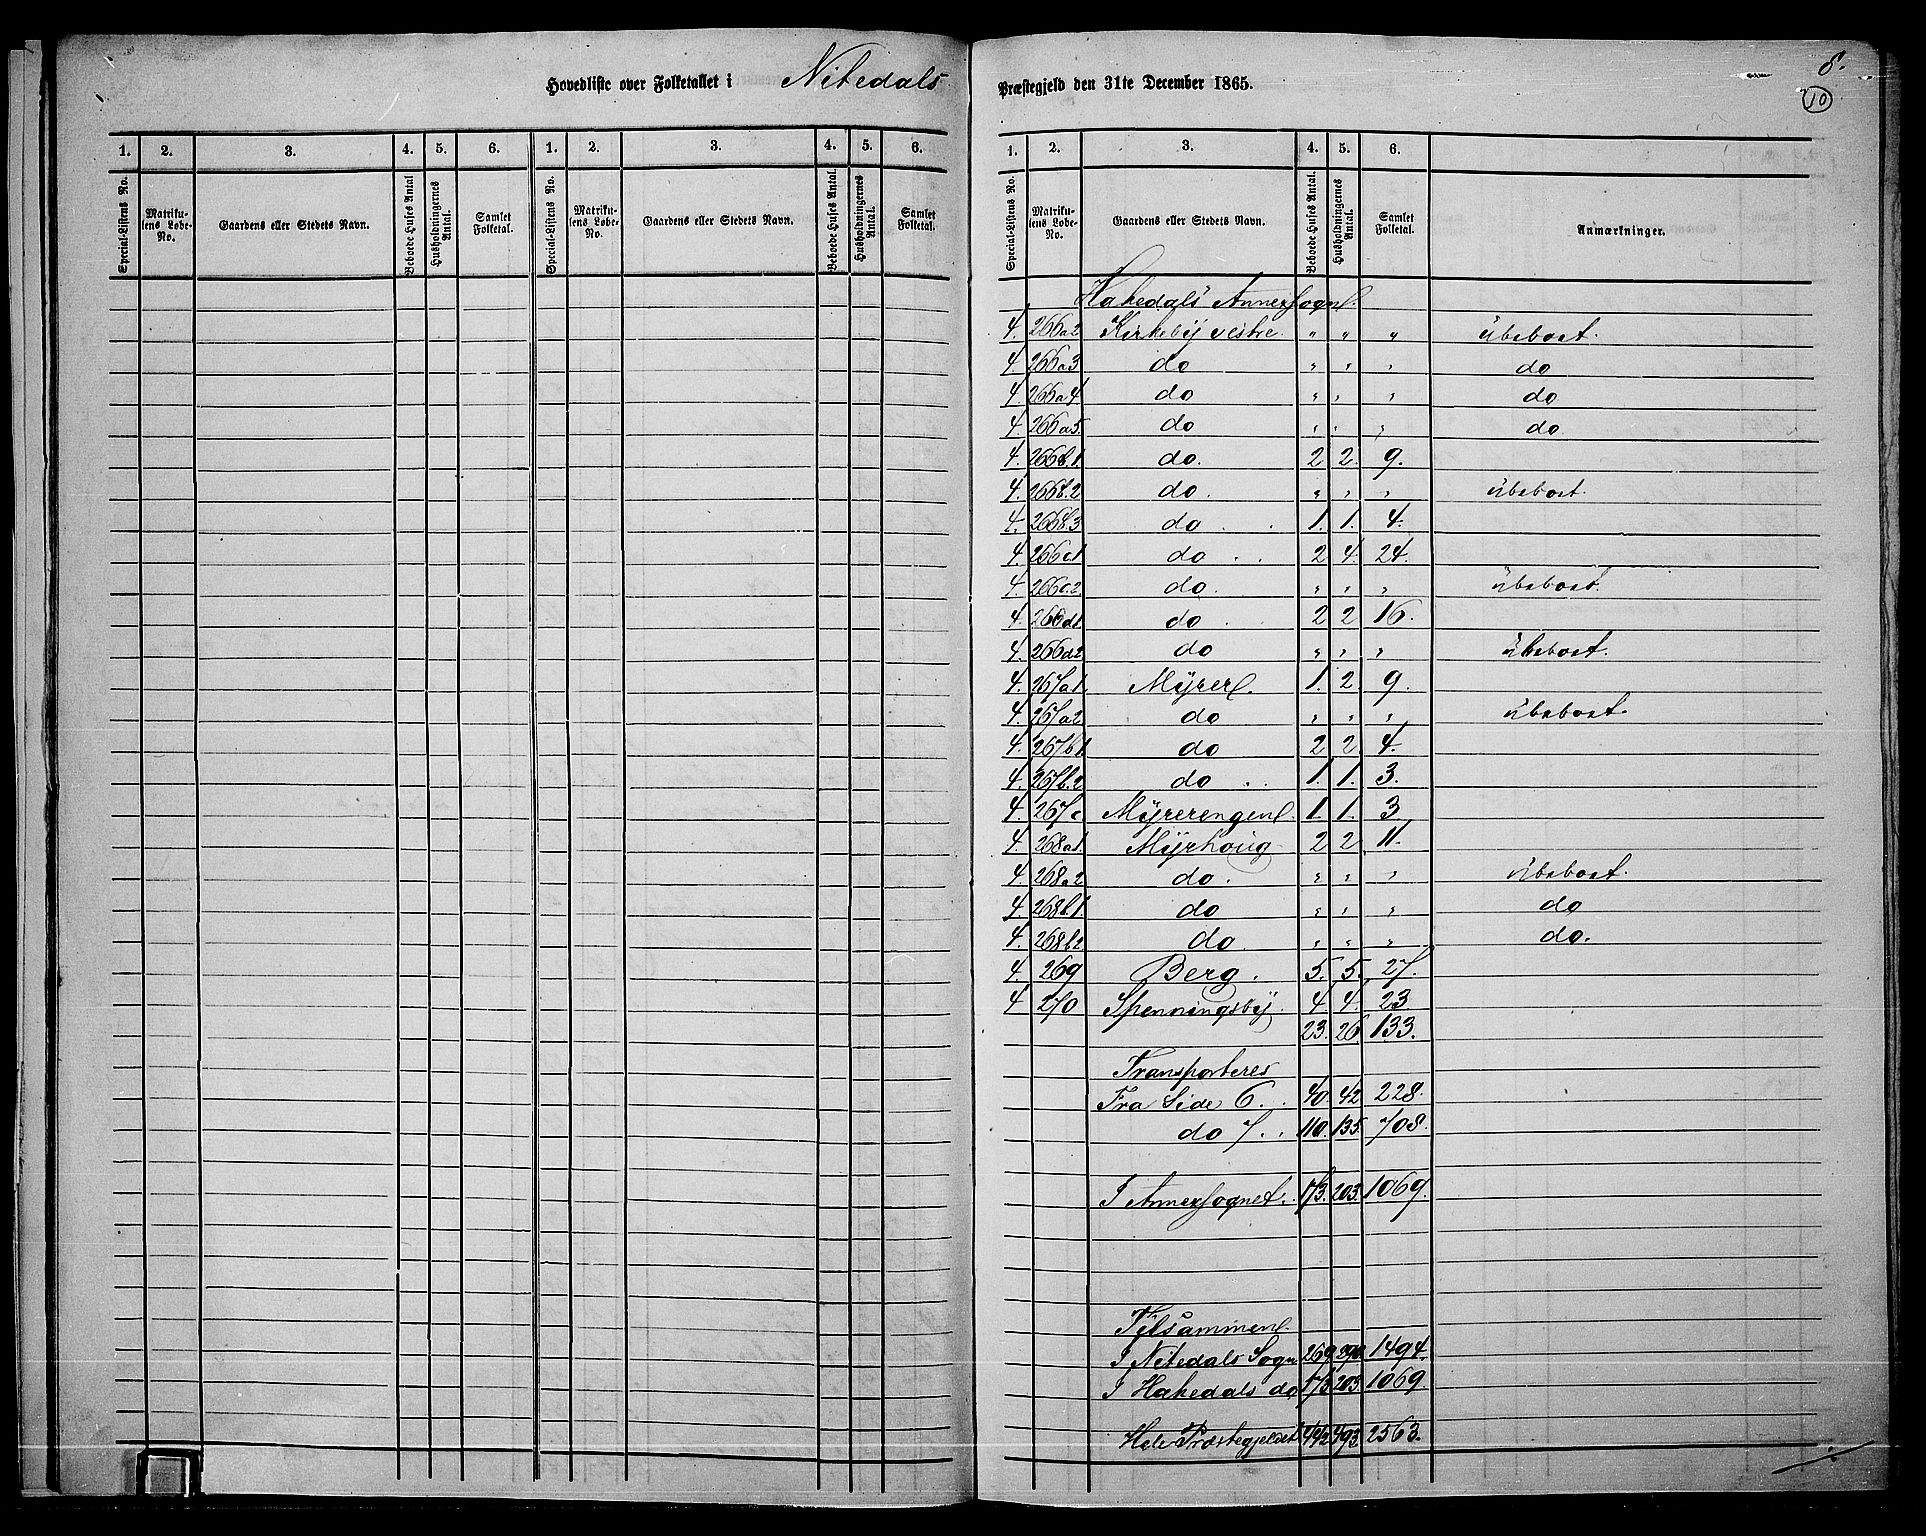 8.
10
Hovedliste over Folketallet i Nitedals Præstegjeld den 31te December 1865.
1. 2. 3. 4. 5. 6. 1. 2. 3. 4. 5. 6.
Special-Listens No. Matrikulens Løbe-No. Gaardens eller Stedets Navn. Beboede Huses Antal Husholdningernes Antal. Samlet Folketal. Special-Listens No. Matrikulens Løbe-No. Gaardens eller Stedets Navn. Beboede Huses Antal. Husholdningernes Antal. Samlet Folketal.
1. 2. 3. 4. 5. 6.
Special-Listens No. Matrikulens Løbe-No. Gaardens eller Stedets Navn. Beboede Huses Antal. Husholdningernes Antal. Samlet Folketal. Anmærkninger.
Hakedals Annexsogn.
4. 266a2 Kirkeby vestre " " " ubeboet.
4. 266a3 do " " " do
4. 266a4. do " " " do
4. 266a5. do " " " do
4. 266b.1. do. 2 2. 9.
4. 266b.2 do. " " " ubeboet.
4. 266b.3 do . . 1. 1. 4.
4. 266c1 do . . 2 4. 24.
4. 266c.2 do. " " " ubeboet.
4. 266d1. do . 2 2 16.
4. 266d2 do " " " ubeboet.
4. 267a1. Myrer. 1. 2 9.
4. 267a2 do " " " ubeboet.
4. 267b1. do 2 2. 4.
4. 267b.2 do . . 1. 1. 3.
4. 267c Myrerengen. 1. 1. 3
4. 268a1. Myrhoug 2 2 11.
4. 268a2 do. " " " ubeboet.
4. 268b.1. do " " " do
4. 268b2 do. " " " do.
4. 269 Berg. 5. 5. 27.
4 270 Spenningsby. 4. 4. 23
23. 26. 133.
Transporteres
Fra Side 6. . 40. 42 228.
do 7. . 110. 135. 708.
I Annexsognet. . 173. 203. 1069.
Tilsammen.
I Nitedals Sogn 269 290. 1494.
I Hakedals do 173 203. 1069.
Hele Præstegjeldet 442 493. 2563.